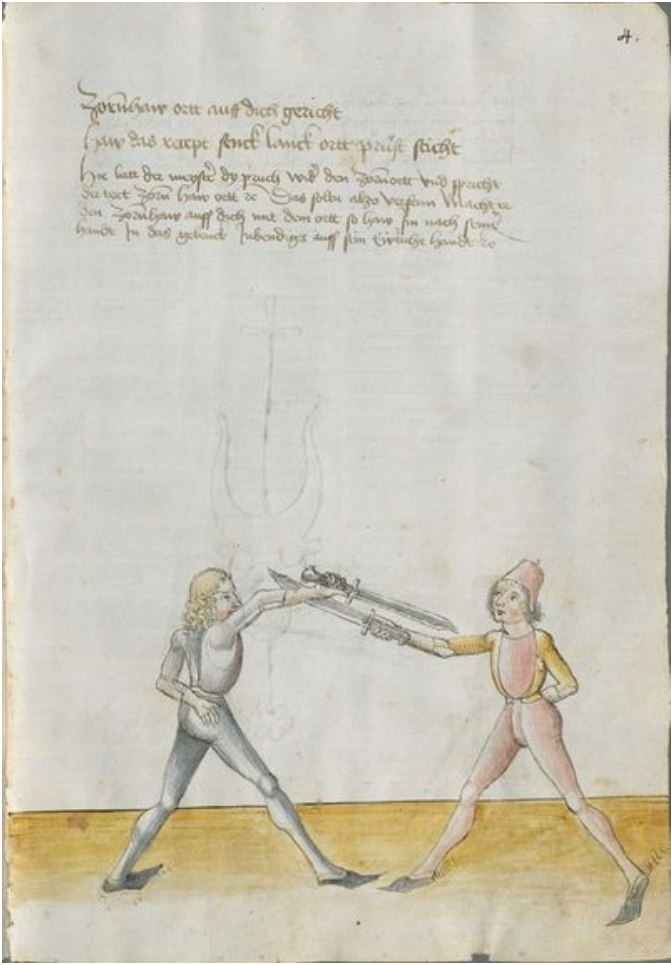 4.
Zornhaw ortt auff dich gericht
haw das recept senck lanck ortt prüst sticht
Hie hatt der meyster dy pruch wider den Zornortt und spricht
der text Zorn haw ortt rc Das soltu also versten Macht er
den Zornhaw auff dich mit dem ortt so haw Im nach seiner
handt In das gelenck Inbendigs auff sein handt rc